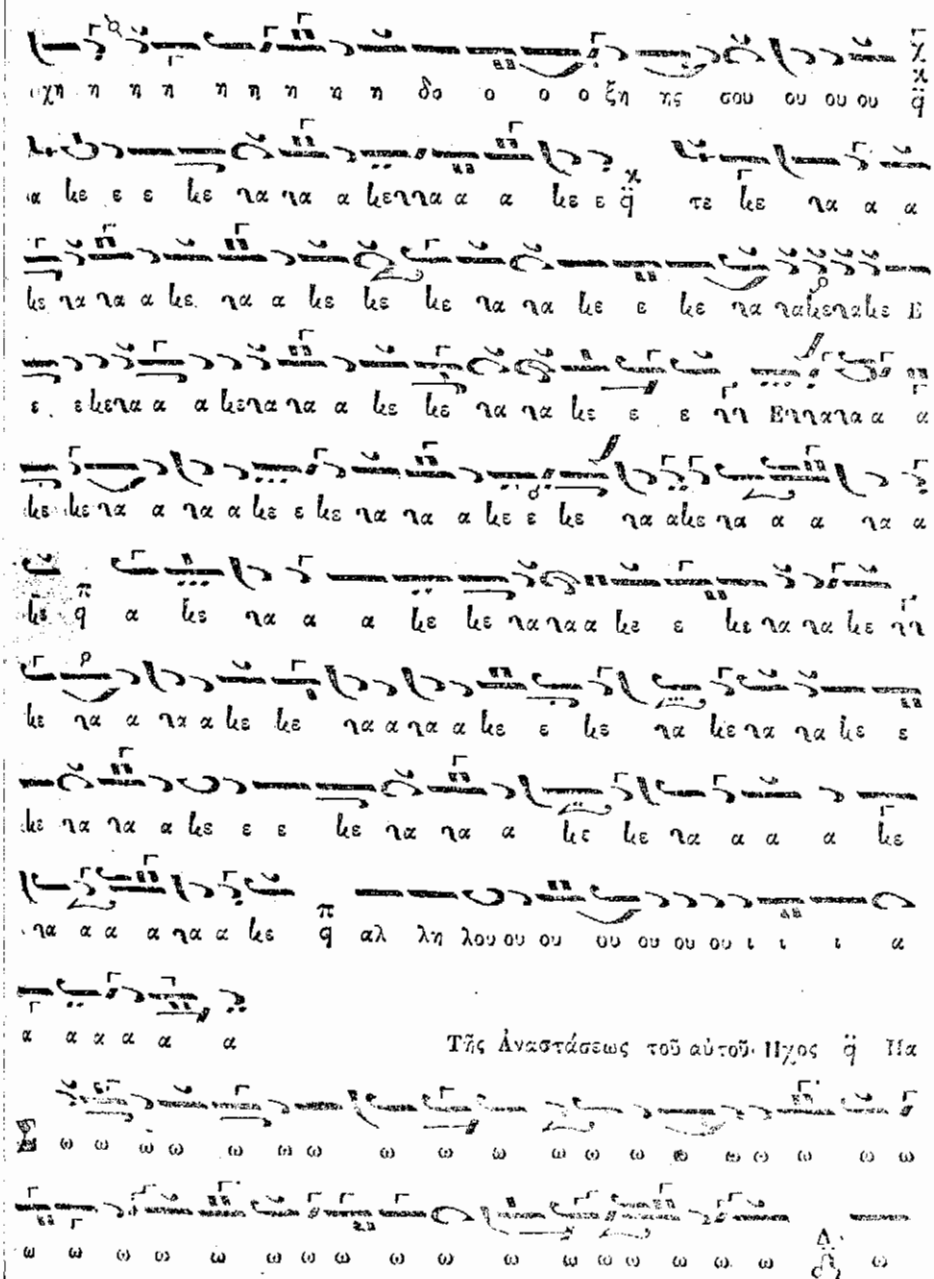 χη η η η η η η η η δο ο ο ο ξη ης σου ου ου ου q̈
α κε ε ε κε τα τα α κετταα α α κε ε q̈ τε κε τα α α α
κε τα τα α κε τα α κε κε κε τα τα κε ε κε τα τακετακε Ε
ε ε κετα α α κετατα τα α κε κε τα τα κε ε ε ττ Εττατα α α
κε κε τα α τα α κε ε κε τα τα α κε ε κε τα ακε τα α α τα α
κε π q α κε τα α α κε κε τα τα α κε ε κε τα τα κε ττ
κε τα α τα α κε κε τα α τα α κε ε κε τα κε τα τα κε ε
κε τα τα α κε ε ε κε τα τα α κε κε τα α α α κε
τα α α α τα α κε π q αλ λη λου ου ου ου ου ου ου ι ι ι α
α α α α α α
Τῆς Ἀναστάσεως τοῦ αὐτοῦ· Ηχος q̈ Πα
Σ ω ω ω ω ω ω ω ω ω ω ω ω ω ω ω ω ω ω ω
ω ω ω ω ω ω ω ω ω ω ω ω ω ω ω ω ω Δ ω